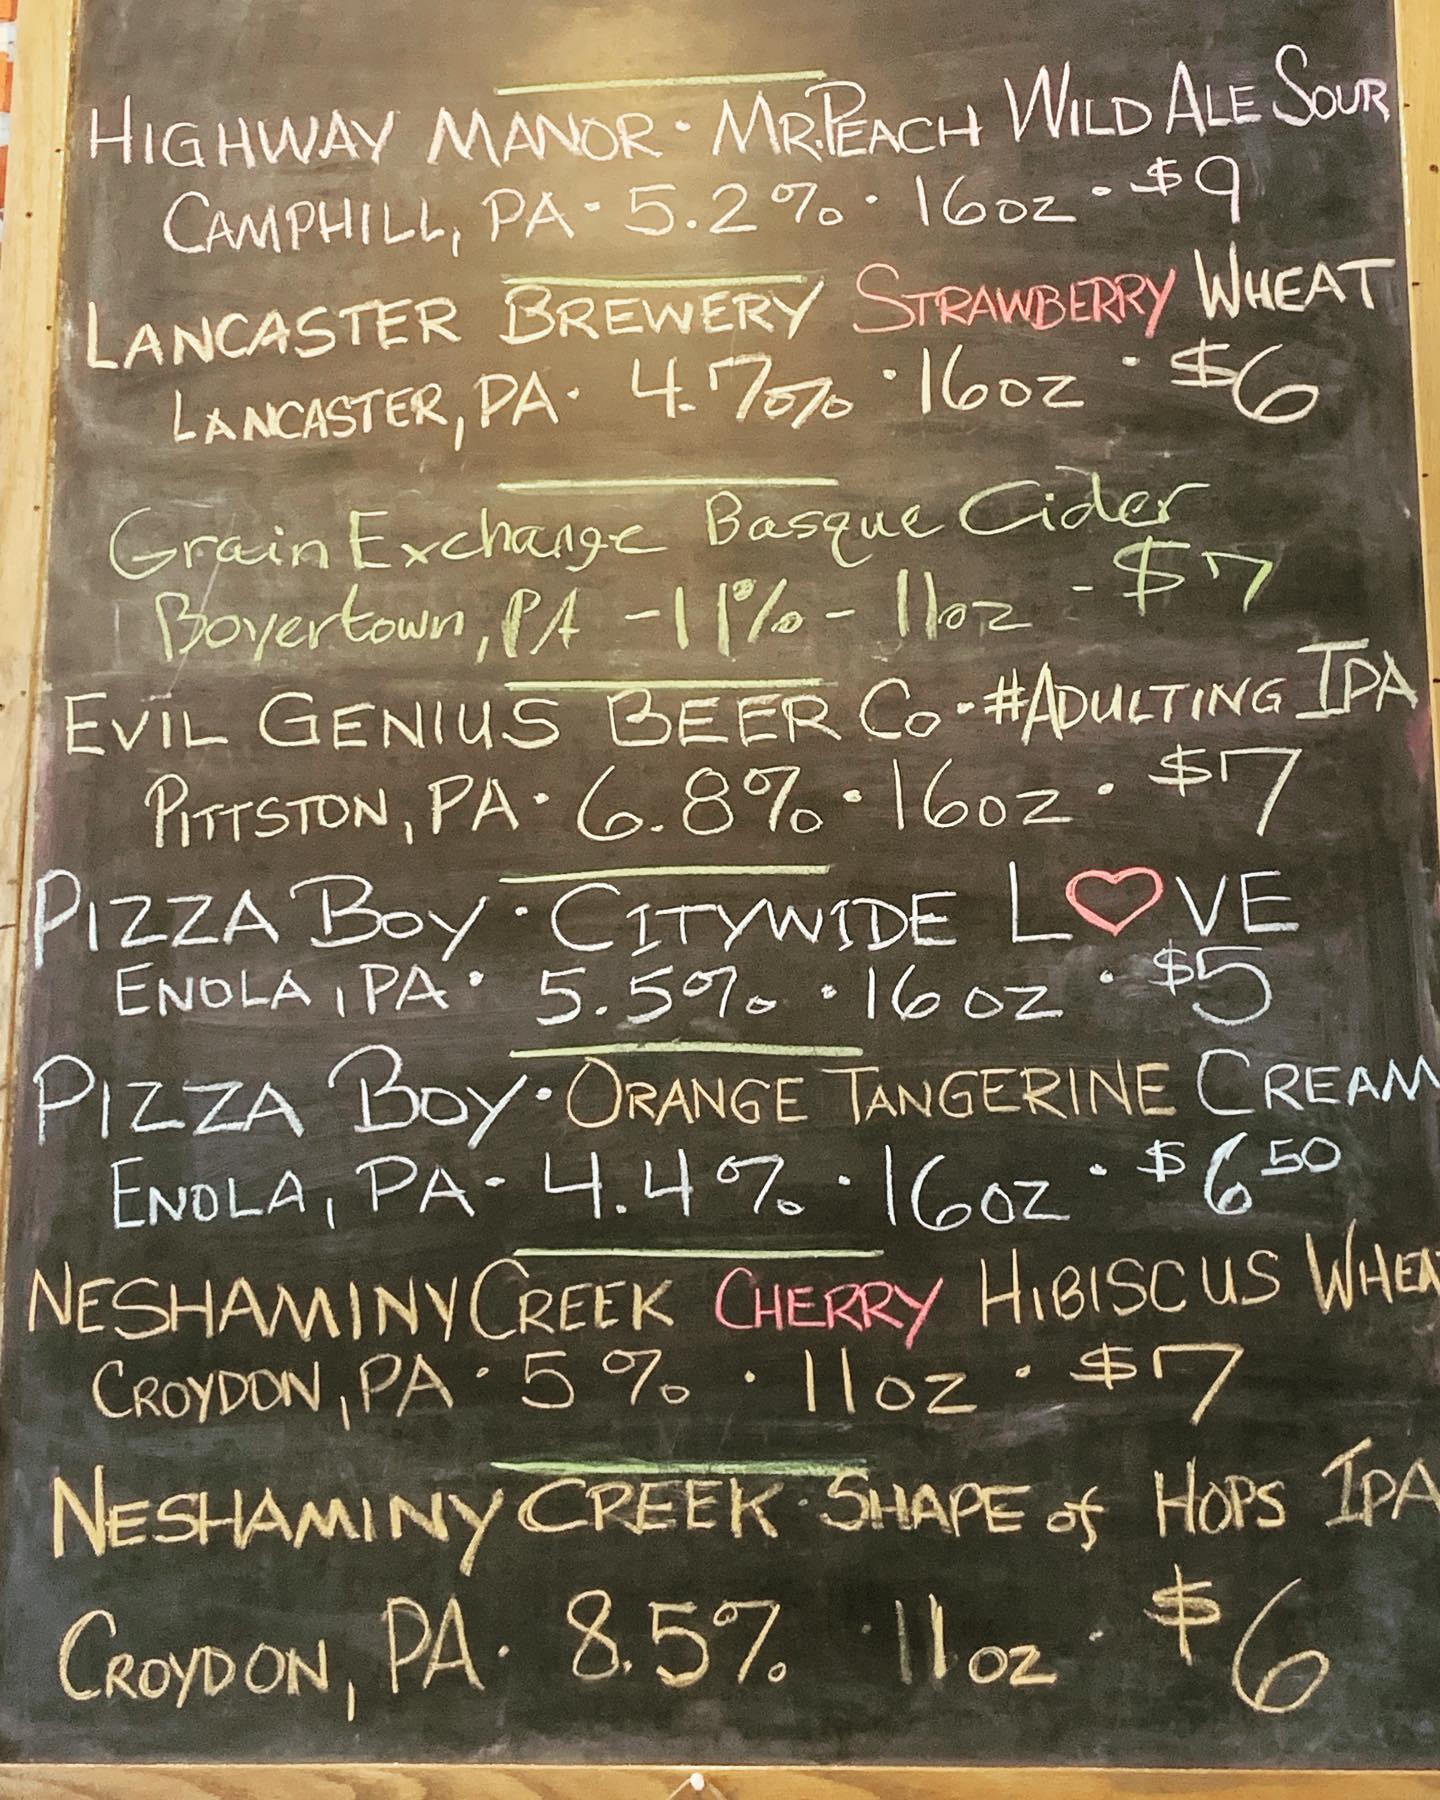 HIGHWAY MANOR · MR. PEACH WILD ALE SOUR
CAMPHILL, PA · 5.2% · 16oz · $9
LANCASTER BREWERY STRAWBERRY WHEAT
LANCASTER, PA · 4.7% · 16oz · $6
Grain Exchange Basque Cider
Boyertown, PA - 11% - 11oz - $7
EVIL GENIUS BEER Co · #ADULTING IPA
PITTSTON, PA · 6.8% · 16oz · $7
PIZZA BOY · CITYWIDE L♡VE
ENOLA, PA · 5.5% · 16oz · $5
PIZZA BOY · ORANGE TANGERINE CREAM
ENOLA, PA · 4.4% · 16oz · $6 50
NESHAMINY CREEK CHERRY HIBISCUS WHEA
CROYDON, PA · 5% · 11oz · $7
NESHAMINY CREEK · SHAPE of HOPS IPA
CROYDON, PA · 8.5% · 11oz · $6